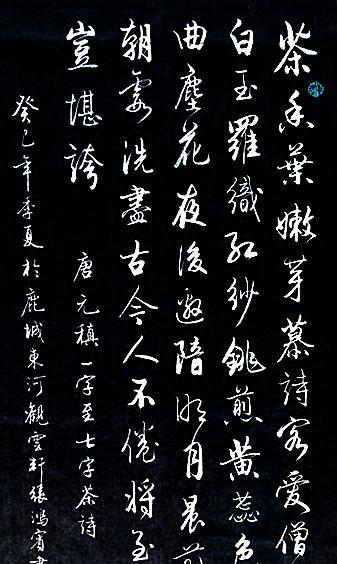 茶香葉嫩芽慕詩客愛僧
白玉羅織紅紗銚煎黃蕊色
曲塵花夜後邀陪明月晨前
朝霞洗盡古今人不倦將至
豈堪誇 唐元稹一字至七字茶詩
癸巳年季夏於鹿城東河觀雲軒張鴻賓書